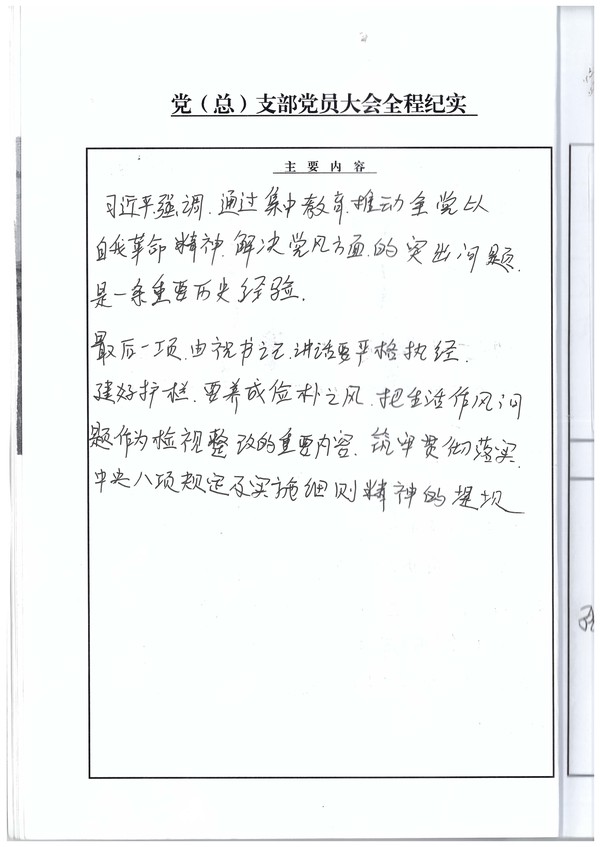 党（总）支部党员大会全程纪实
主要内容
习近平强调，通过集中教育，推动全党以
自我革命精神，解决党风方面的突出问题，
是一条重要历史经验.
最后一项，由祝书记，讲话要严格执经.
建好护栏，要养成俭朴之风，把生活作风问
题作为检视整改的重要内容，筑牢贯彻落实
中央八项规定及实施细则精神的堤坝